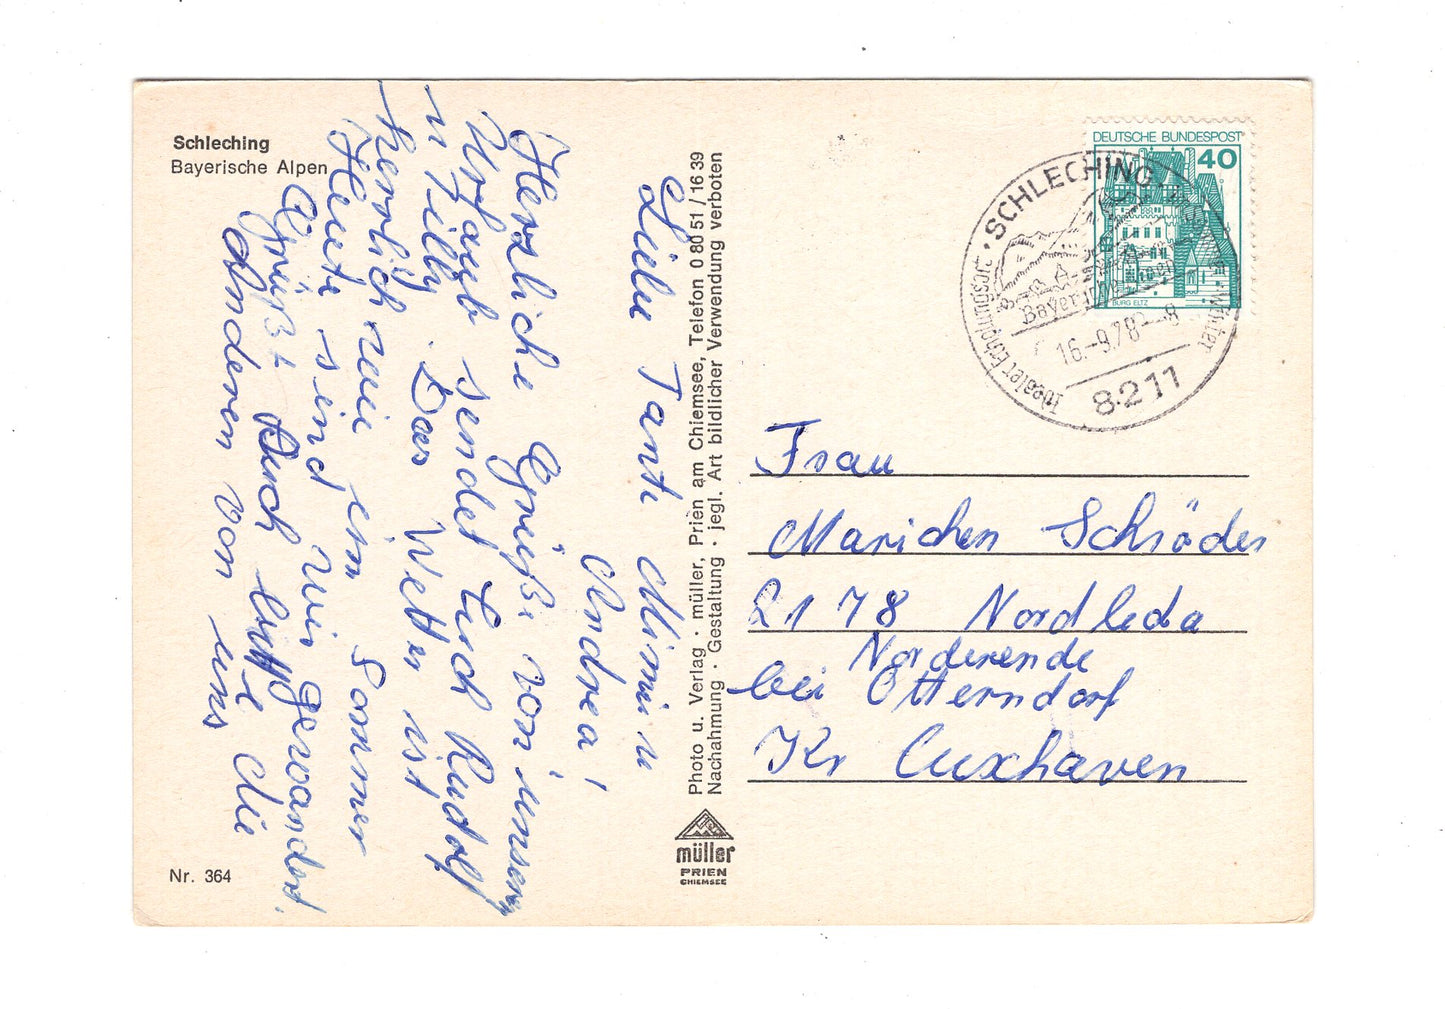 Schleching
Bayerische Alpen
Liebe Tante Mimi u
Andrea!
Herzliche Grüße von unserm
Urlaub sendet Euch Rudolf
u Zilly. Das Wetter ist
herrlich wie ein Sommer
Heute sind wir gewandert.
Grüßt Auch bitte die
Anderen von uns
Nr. 364
Photo u. Verlag · müller, Prien am Chiemsee, Telefon 0 80 51 / 16 39
Nachahmung · Gestaltung · jegl. Art bildlicher Verwendung verboten
müller
PRIEN
CHIEMSEE
DEUTSCHE BUNDESPOST
40
BURG ELTZ
SCHLECHING
Idealer Erholungsort
Winter
Bayer
16.-9.78 - 8
8211
Frau
Mariechen Schröder
2178 Nordleda
Norderende
bei Otterndorf
Kr Cuxhaven